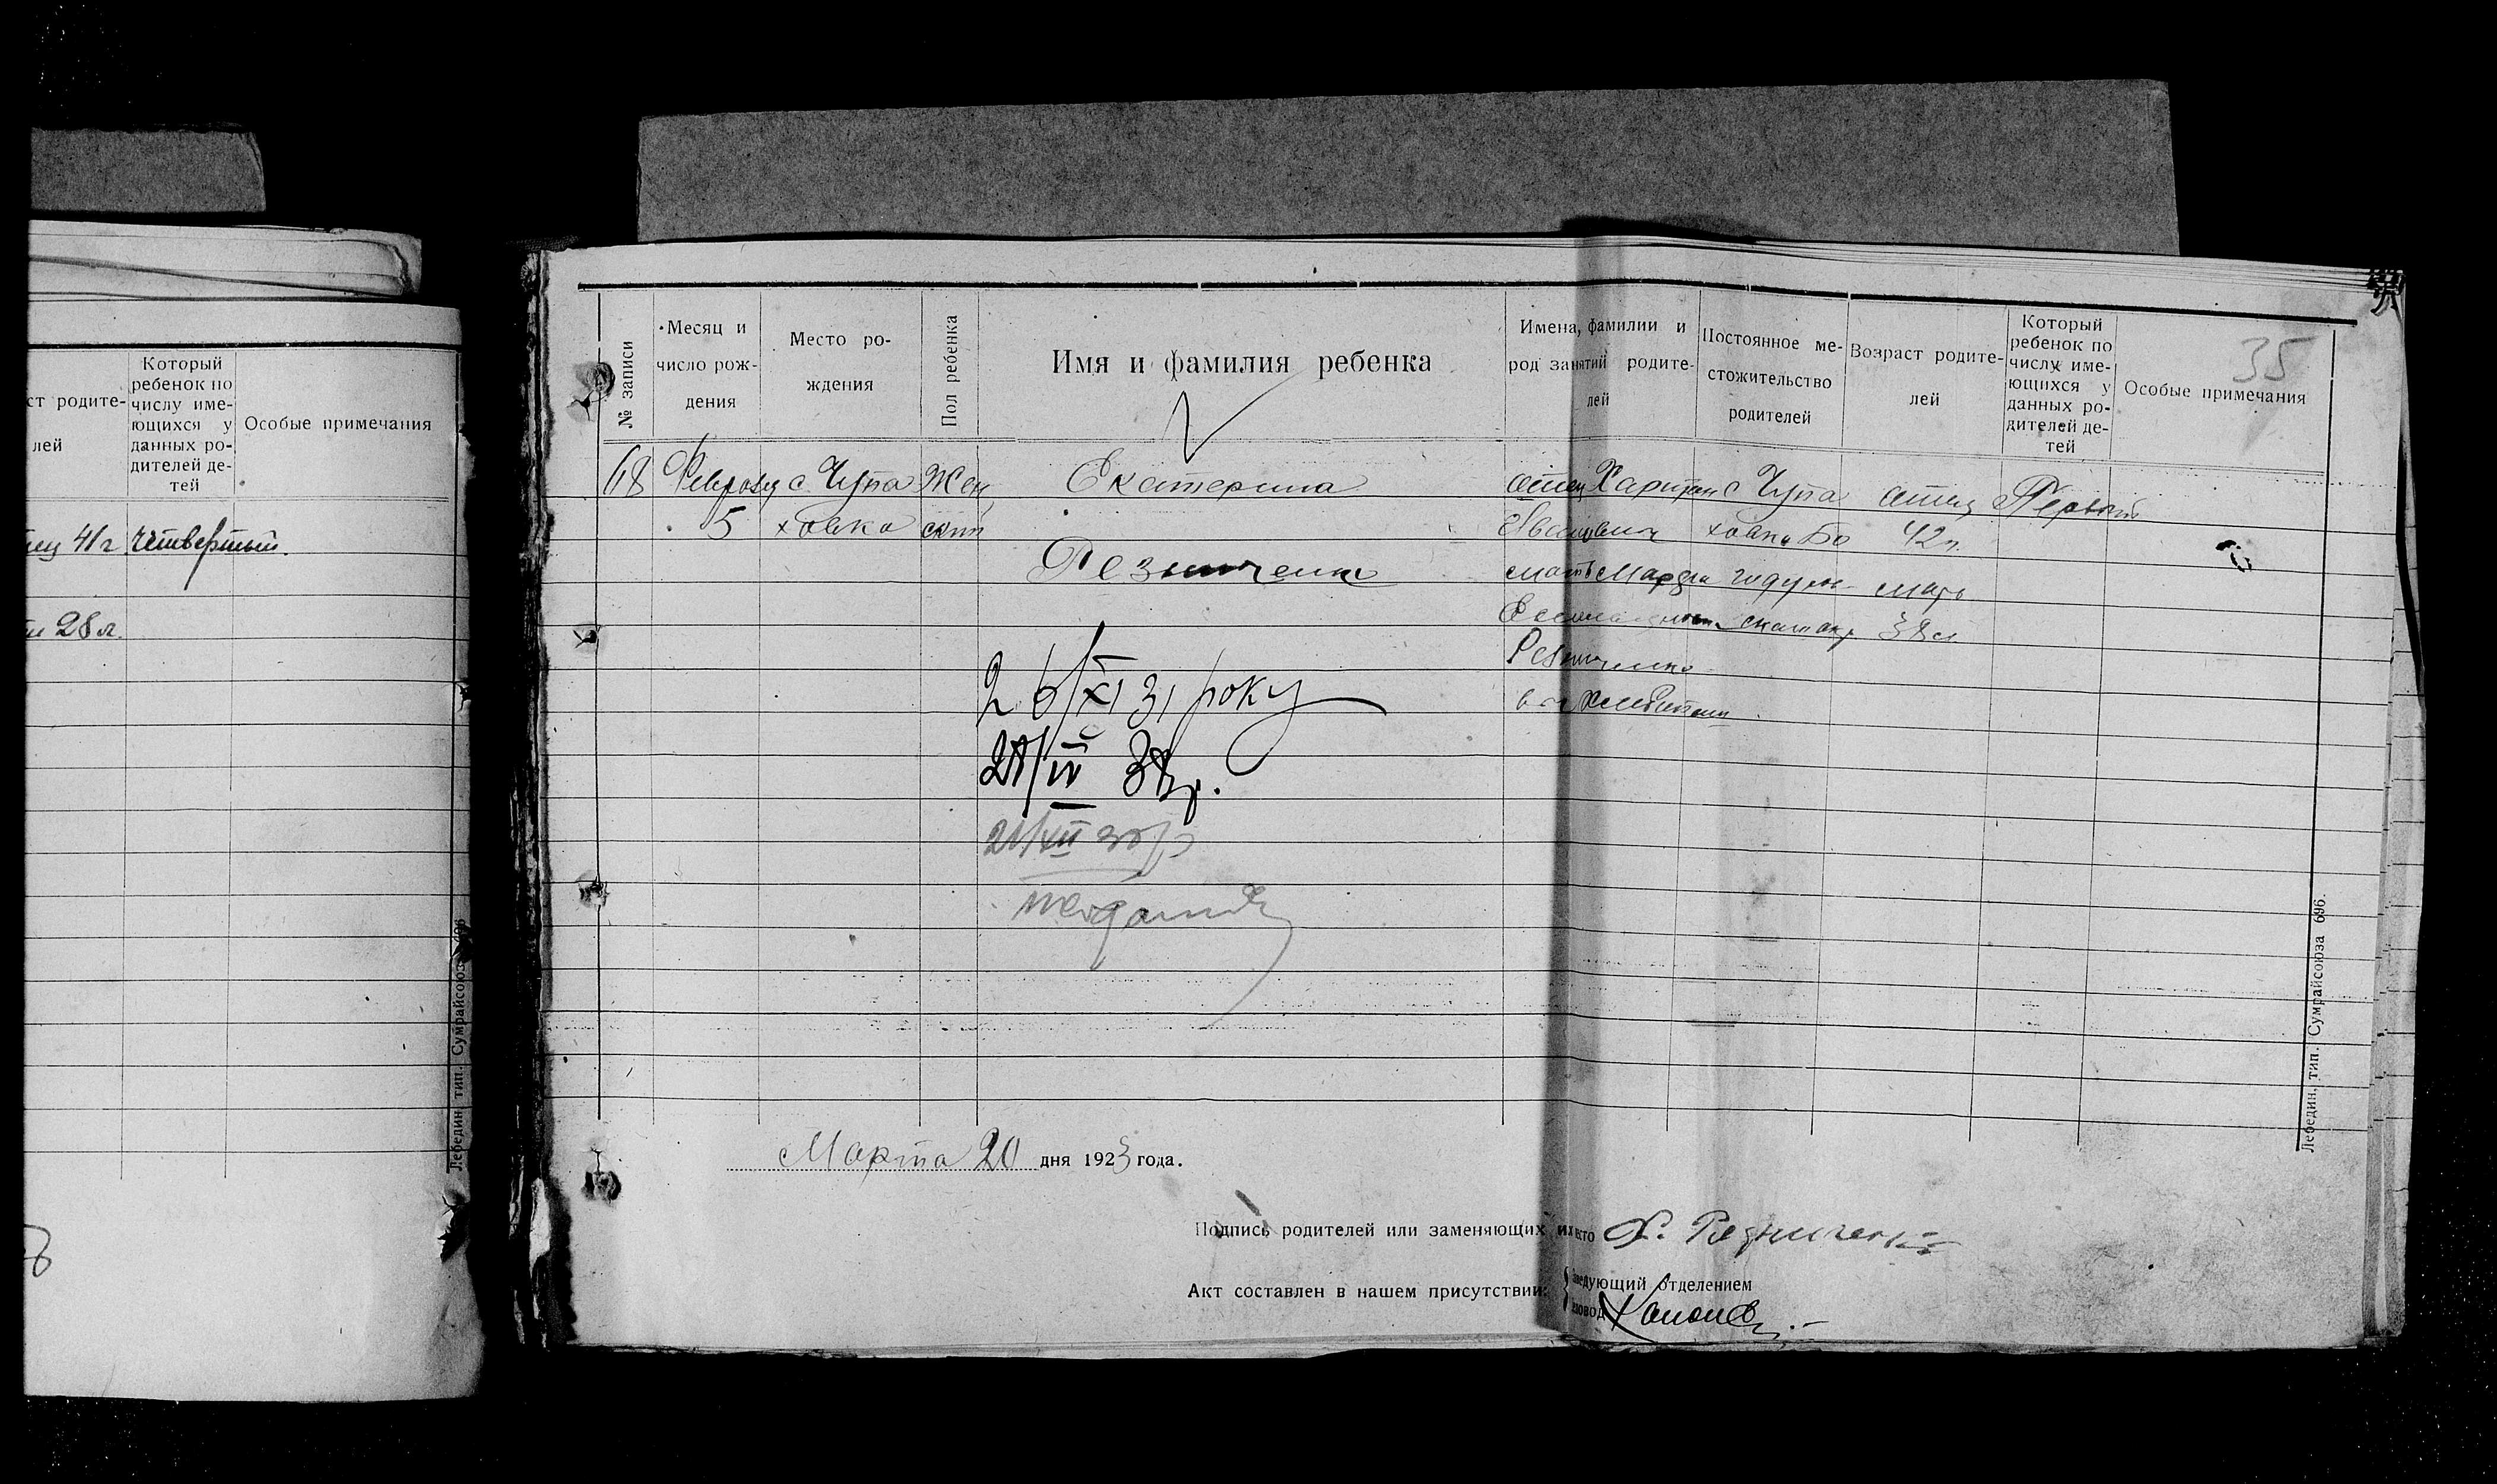 ст родите-
лей
Который
ребенок по
числу име-
ющихся у
данных ро-
дителей де-
тей
Особые примечания
41 г четвертый.
28 л.
Лебедин. тип. Сумрайсоюза 696
35
№ записи
Месяц и
число рож-
дения
Место ро-
ждения
Пол ребенка
Имя и фамилия ребенка
Имена, фамилии и
род занятий родите-
лей
Постоянное ме-
стожительство
родителей
Возраст родите-
лей
Который
ребенок по
числу име-
ющихся у
данных ро-
дителей де-
тей
Особые примечания
68 с. Чупа Жен Екатерина отец Харитон с Чупа отец Первый
5 ховка ский ховка Бо 42 г.
Резниченко мать Марфа годухо мать
38 л
Резниченко
26/XI 31 року
21/XII
Марта 20 дня 1923 года.
Подпись родителей или заменяющих их место Х. Резниченко
Акт составлен в нашем присутствии: Заведующий отделением
Лебедин. тип. Сумрайсоюза 696.